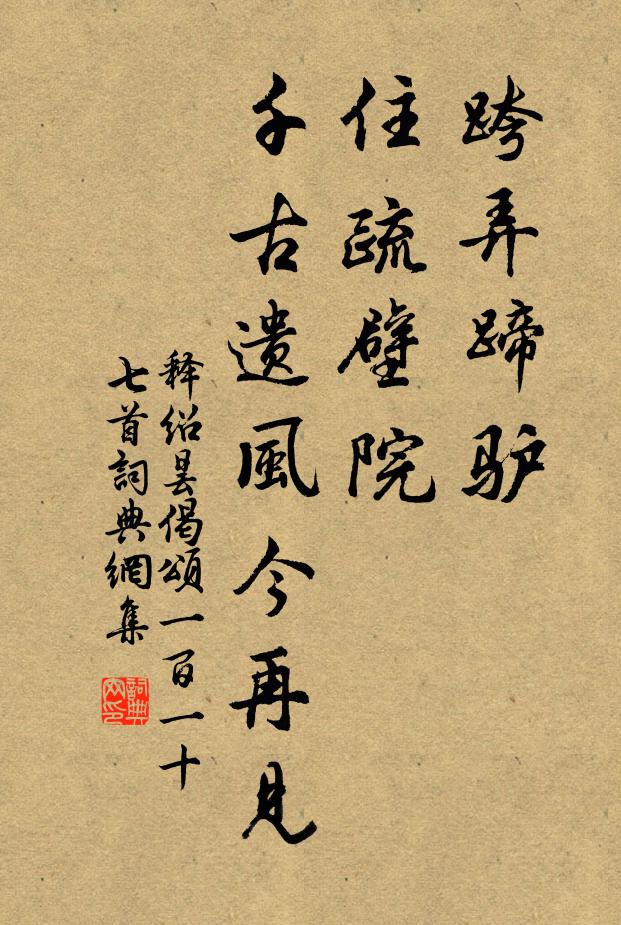 跨弄蹄驴
住疏壁院
千古遗風今再見
释绍昙偈頌一百一十
七首詞典網集
詞典网印